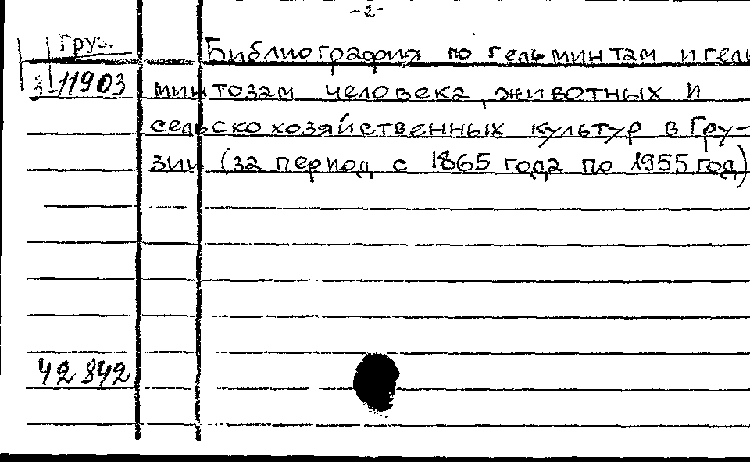 -2-
Груз.
Библиография по гельминтам и гель
3 11903
минтозам человека, животных и
сельско хозяйственных культур в Гру-
зии (за период с 1865 года по 1955 год)
42 842